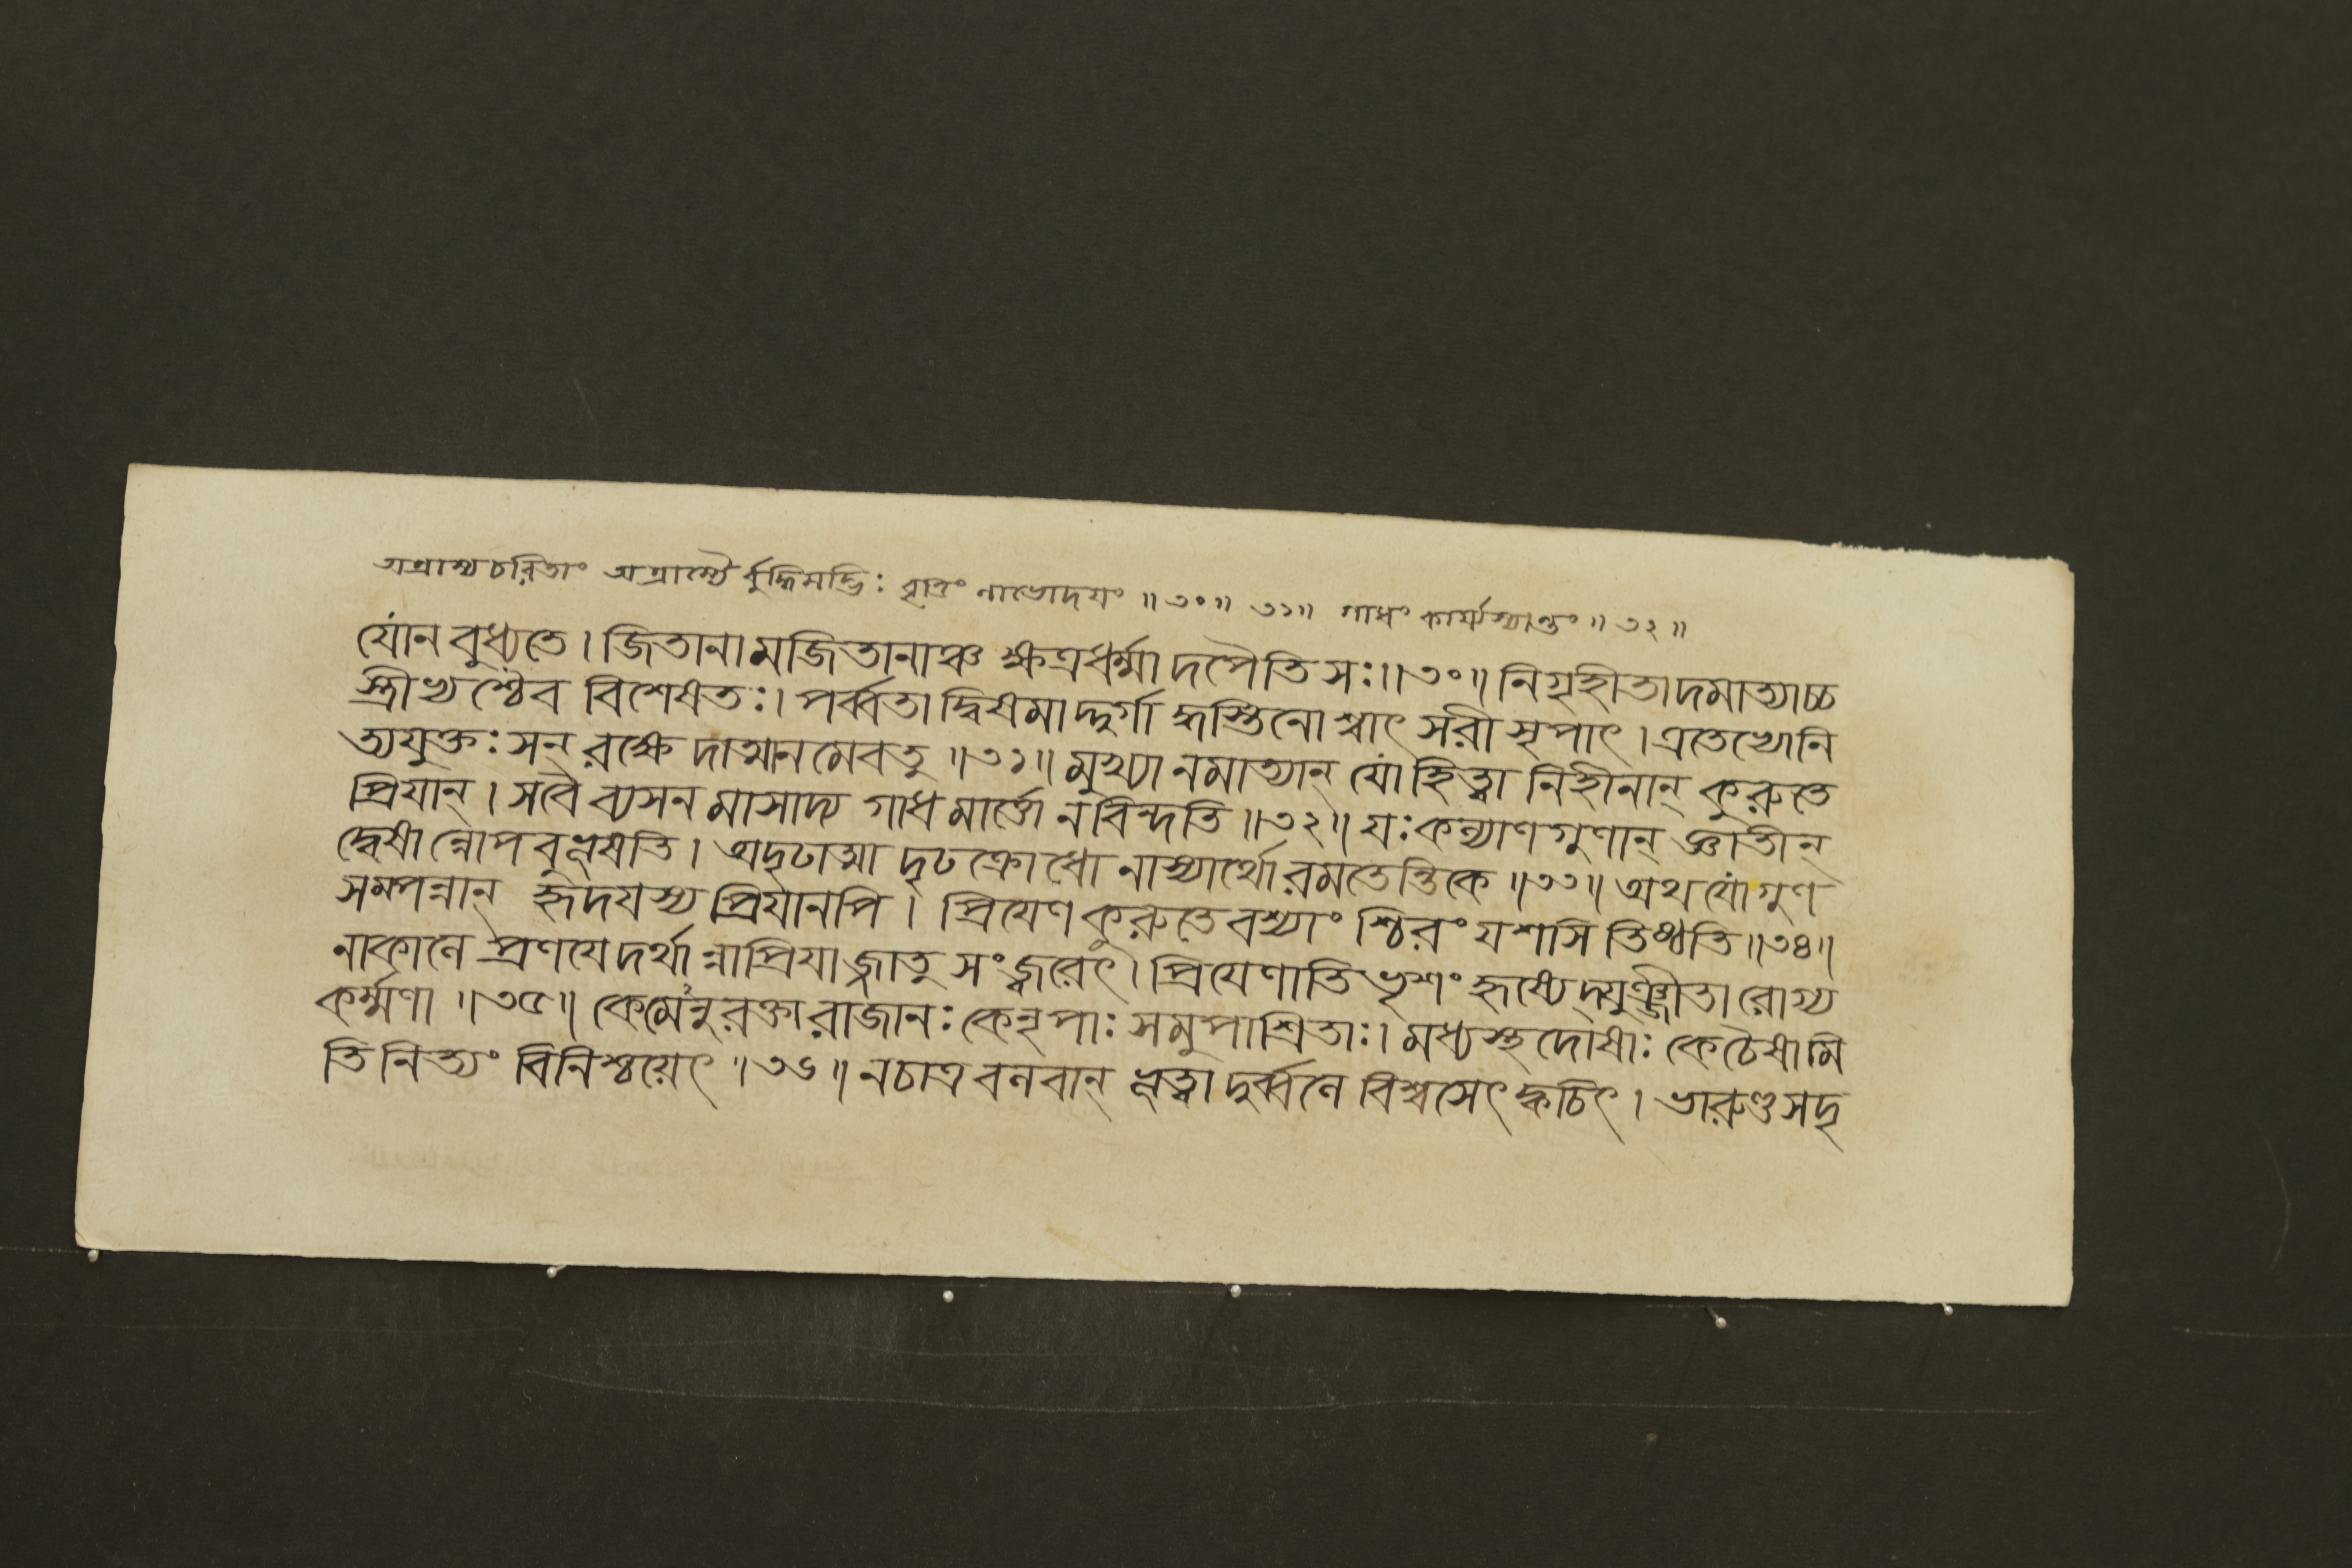 অগ্রাম্যচরিতাং অগ্রাম্যৈ র্বুদ্ধিমদ্ভিঃ বৃত্তিং নাভোদয়ং ॥ ৩০॥ ৩১॥ গাধং কার্য্যস্যান্তং ॥ ৩২ ॥
যোন বুধ্যতে । জিতানামজিতানাঞ্চ ক্ষত্রধর্ম্মাদপৈতি সঃ ॥ ৩০ ॥ নিগৃহীতাদমাত্যাচ্চ
স্ত্রীভ্যশ্চৈব বিশেষতঃ । পর্ব্বতাদ্বিষমাদ্দুর্গা দ্ধস্তিনোশ্বাৎ সরীসৃপাৎ । এতেভ্যোনি
ত্যযুক্তঃ সন্ রক্ষে দাত্মানমেবতু ॥ ৩১ ॥ মুখ্যানমাত্যান্ যো হিত্বা নিহীনান্ কুরুতে
প্রিযান্ । সবৈ ব্যসনমাসাদ্য গাধমার্ত্তো নবিন্দতি ॥ ৩২ ॥ যঃ কল্যাণগুণান্ জ্ঞাতীন্
দ্বেষান্নোপবুভূষতি । অদৃঢাত্মা দৃঢক্রোধো নাস্যার্থো রমতেন্তিকে ॥ ৩৩ ॥ অথ যোগুণ
সম্পন্নান্ হৃদযস্য প্রিযানপি । প্রিযেণ কুরুতে বশ্যাং শ্চিরং যশসি তিষ্ঠতি ॥ ৩৪ ॥
নাকালে প্রণযেদর্থা ন্নাপ্রিযাজ্জাতু সংজ্বরেৎ । প্রিযেণাতিভৃশং হৃষ্যেদ্যুঞ্জীতারোগ্য
কর্ম্মণা ॥ ৩৫ ॥ কেমেনুরক্তা রাজানঃ কেনৃপাঃ সমুপাশ্রিতাঃ । মধ্যস্থদোষাঃ কেচৈষামি
তি নিত্যং বিনিশ্চয়েৎ ॥ ৩৬ ॥ নচাত্র বলবান্ ভূত্বা দুর্ব্বলে বিশ্বসেৎ ক্বচিৎ । ভারুণ্ডসদৃ